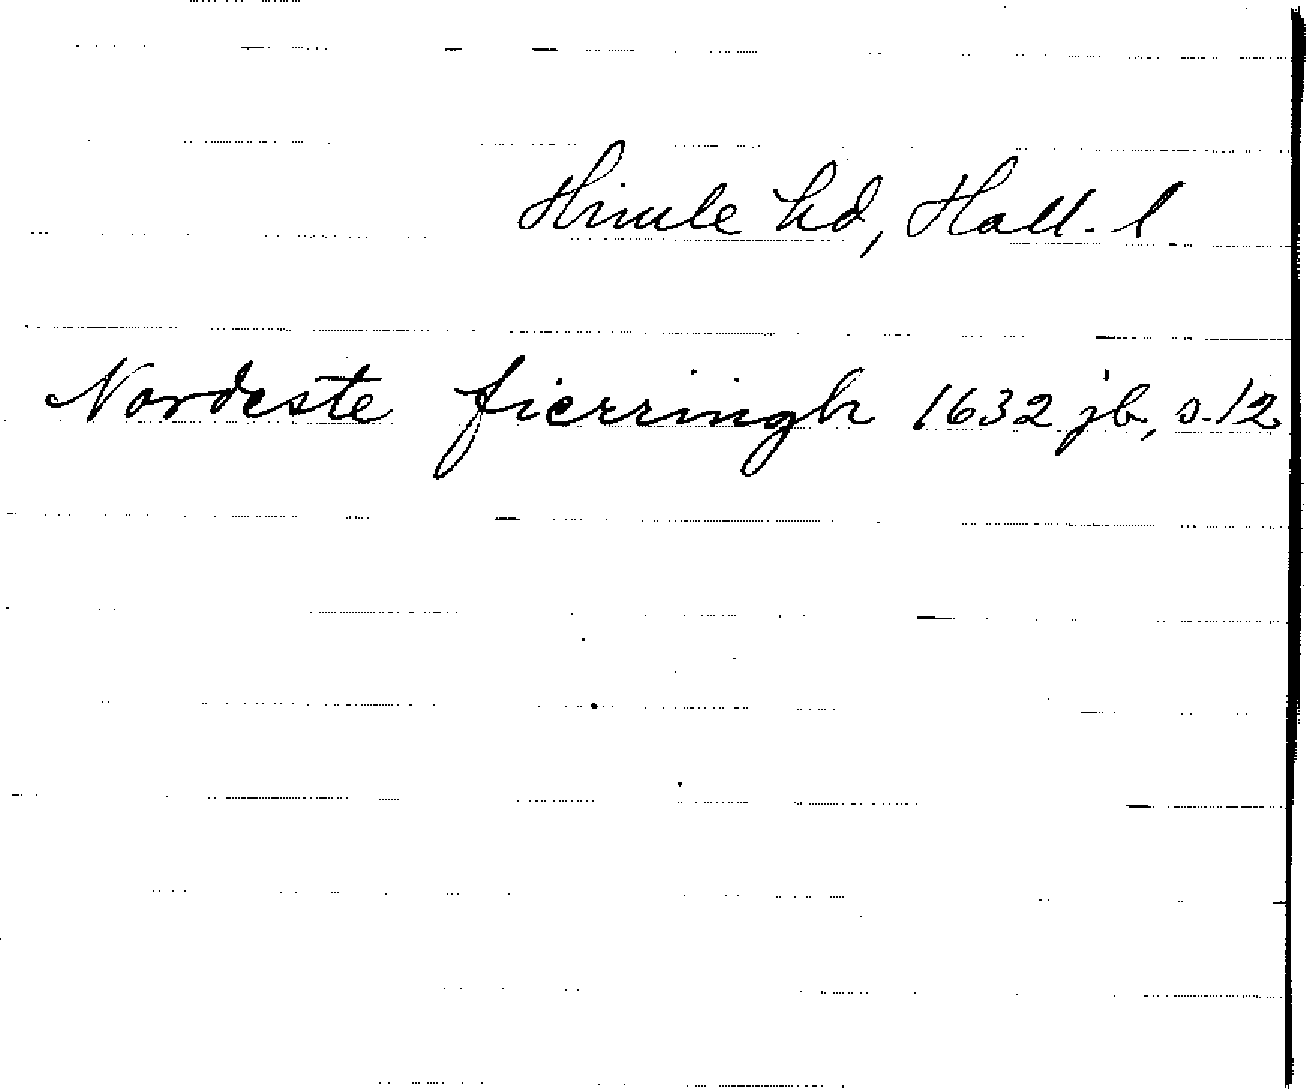 Himle hd, Hall. l
Nordeste fierringh 1632 jb, s. 12